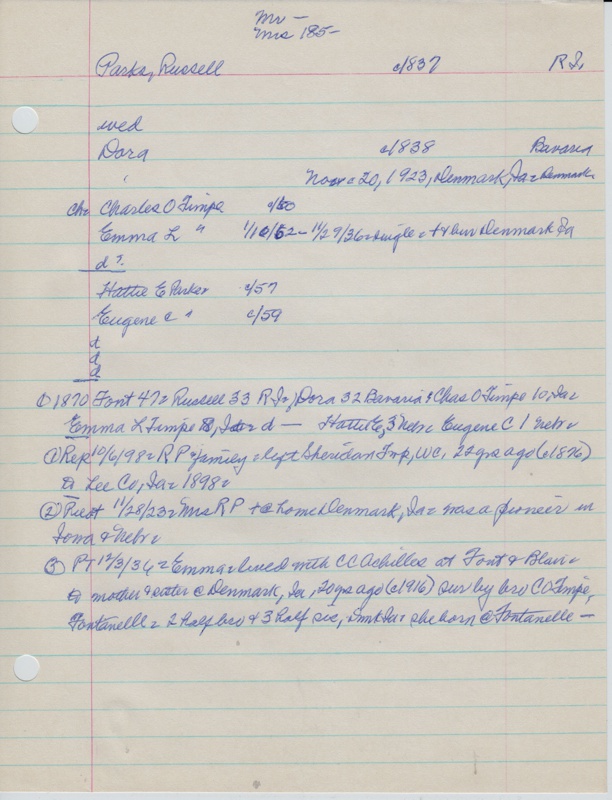 Mr -
Mrs 185-
Parks, Russell c/1837 R I,
wed
Dora c/1838 Bavaria
Nov c 20, 1923, Denmark, Ia = Denmark
ch = Charles O Timpe c/60
Emma L " - 11/29/36 = single = + & bur Denmark Ia
d ?
Hattie E Parker c/57
Eugene C " c/59
d
d
d
① 1870 Font 47 = Russell 33 R I, Dora 32 Bavaria & Chas O Timpe 10, Ia
Emma L Timpe 8, d — Hattie E, 3 Nebr Eugene C 1 Nebr
① Rep 10/6/98 = R P & family = left Sheridan Twp, WC, 22 yrs ago (c1876)
@ Lee Co, Ia = 1898 =
② Pilot 11/28/23 = Mrs R P + @ home Denmark, Ia = was a pioneer in
Iowa & Nebr
③ PT 12/3/36 = Emma = lived with CC Achilles at Font & Blair =
mother & sister @ Denmark, Ia, 20 yrs ago (c1916) sur by bro C O Timpe,
Fontanelle = 2 half bro & 3 half sis, Dmk Ia = she born @ Fontanelle —